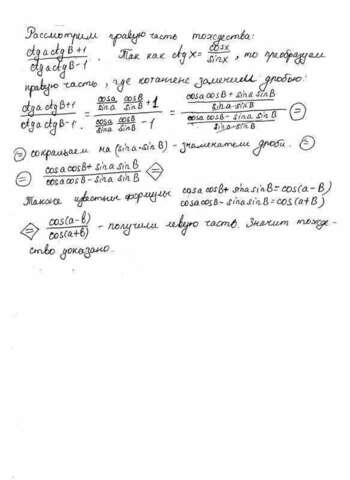 Рассмотрим правую часть тождества:
ctg a ctg B + 1 / ctg a ctg B - 1 . Так как ctg x = cosx / sinx , то преобразуем
правую часть, где котангенс заменим дробью:
ctg a ctg B + 1 / ctg a ctg B - 1 . = (cosa / sina · cosB / sinB + 1) / (cosa / sina · cosB / sinB - 1) = (cosa cosB + sina sinB / sina·sinB) / (cosa cosB - sina sinB / sina·sinB) =
= сокращаем на (sina·sinB) - знаменатели дроби. =
= cosa cosB + sina sinB / cosa cosB - sina sinB =
Также известные формулы cosa cosB + sina sinB = cos(a-B)
cosa cosB - sina sinB = cos(a+B)
= cos(a-b) / cos(a+b) - получили левую часть. Значит тожде-
ство доказано.